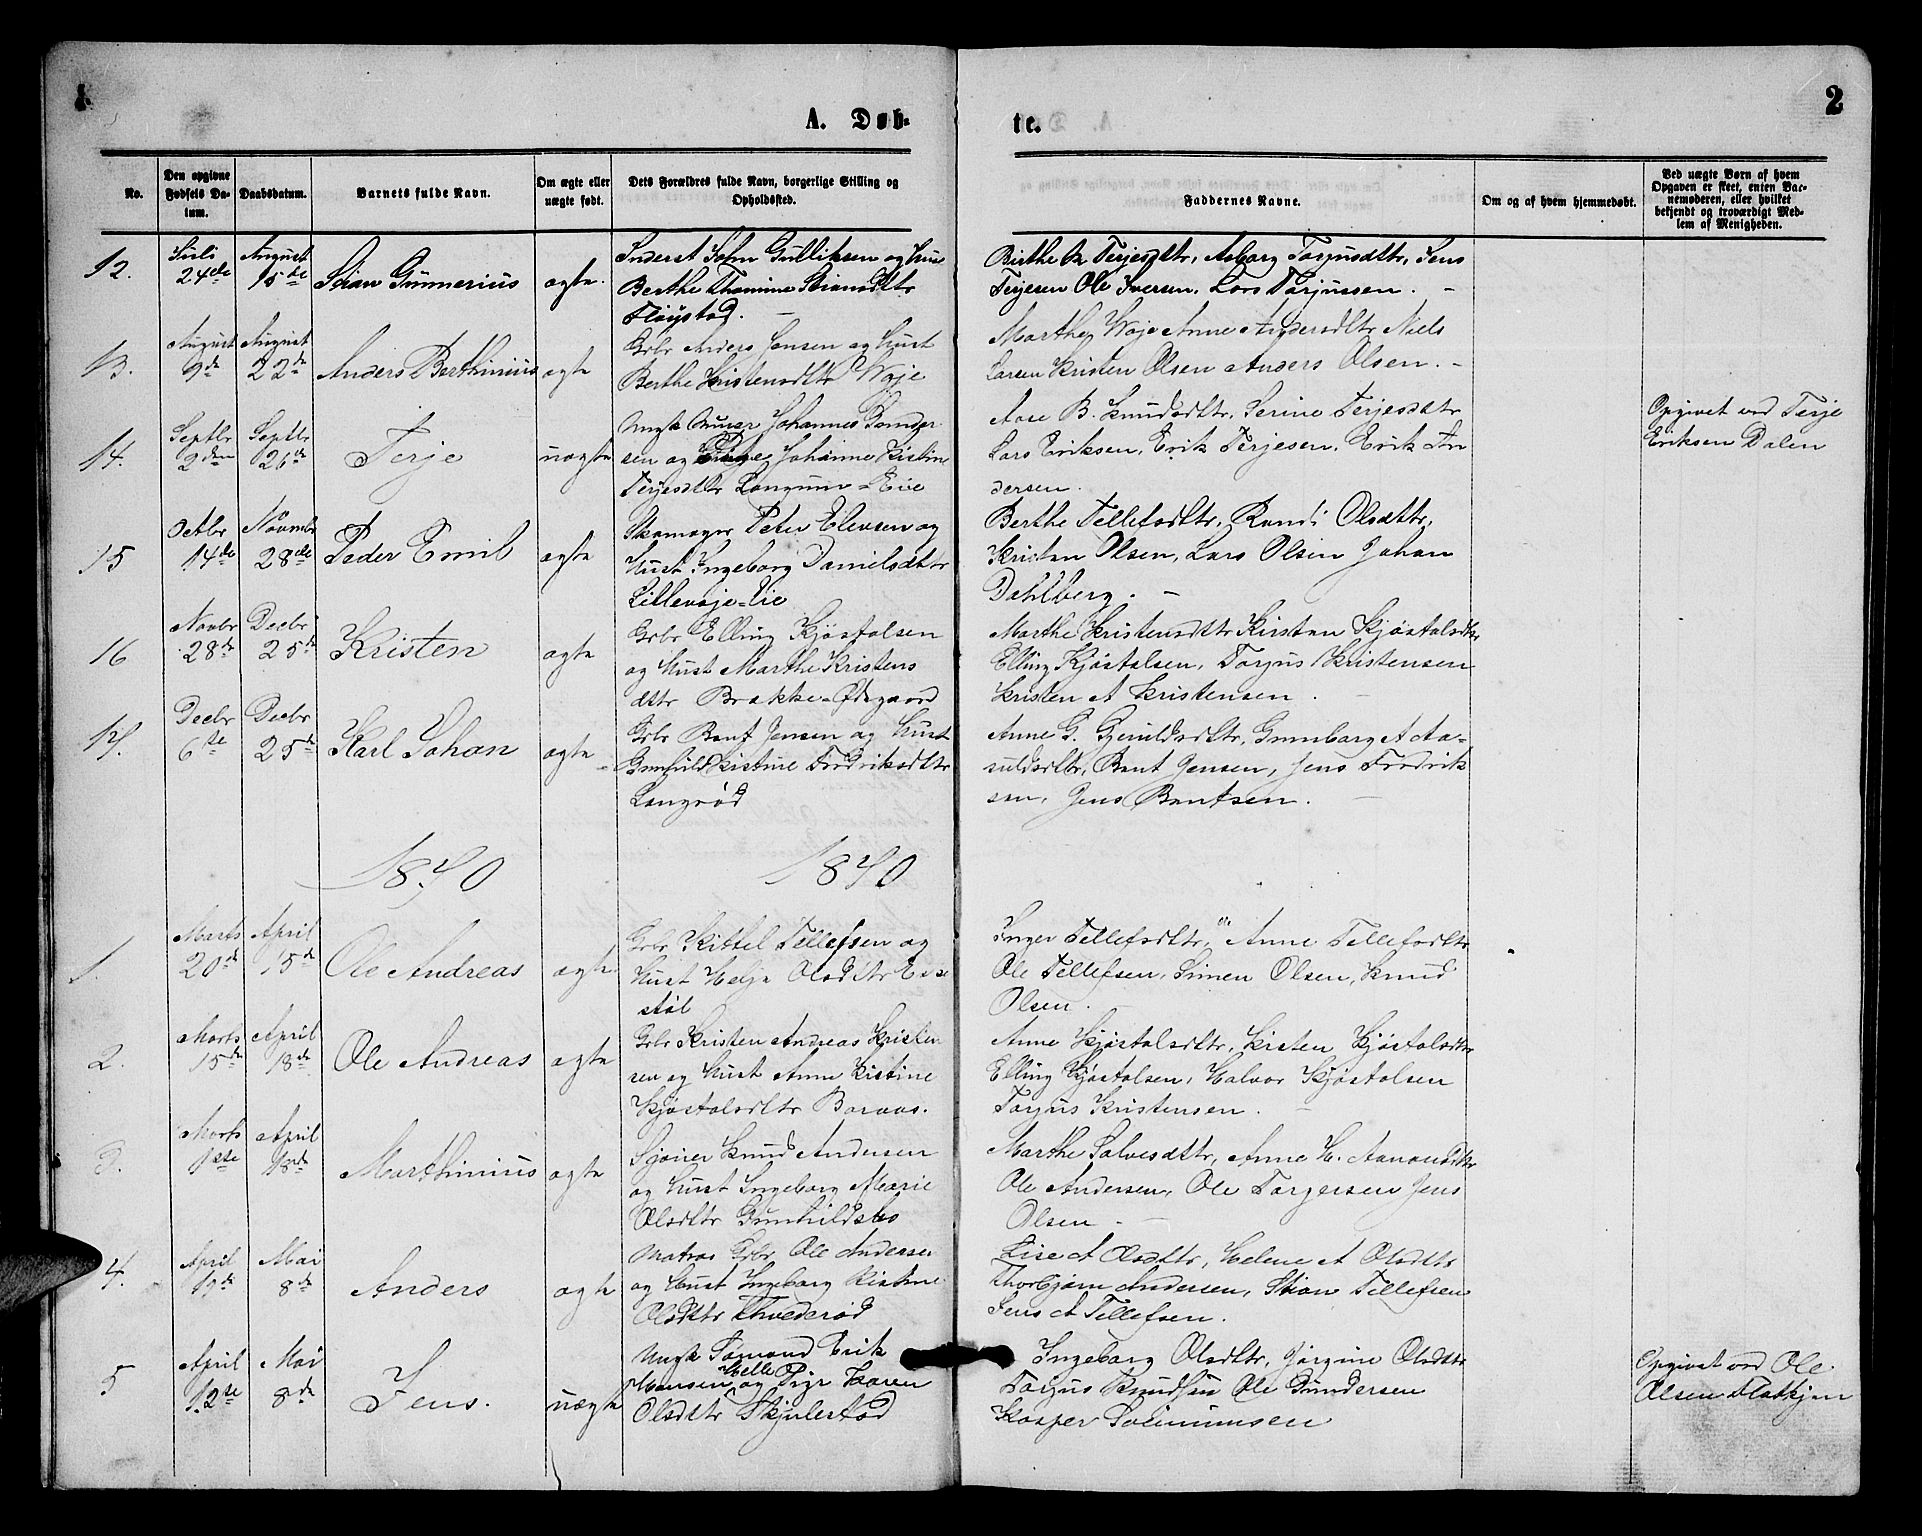 1
2
A. Døb-
te.
No.
Den opgivne Fødsels Da-
tum.
Daabsdatum.
Barnets fulde Navn.
Om ægte eller
uægte født.
Dets Forældres fulde Navn, borgerlige Stilling og
Opholdssted.
Faddernes Navne.
Om og af hvem hjemmedøbt.
Ved uægte Børn af hvem
Opgaven er skeet, enten Bar-
nemoderen, eller hvilket
bekjendt og troværdigt Med-
lem af Menigheden.
12. Juli 24de August 15de Stian Gunnerius ægte.
Inderst John Gulliksen og Hust
Berthe Thomine Stiansdttr
Fløystad.
Birthe K Terjesdttr, Asborg Torjusdttr, Jens
Terjesen Ole Iversen, Lars Torjussen. -
13. August 9de August 22de Anders Berthinius ægte
Gbr Anders Jensen og Hust
Berthe Kristensdttr Woje
Marthe Woje Anne Andersdttr Niels
Larsen Kristen Olsen Anders Olsen. -
14. Septbr 2den Septbr 26de Terje uægte
Ungk Murer Johannes Gunder
sen og Pige Johanne Kistine
Terjesdttr Langum-Eie
Aase B. Knudsdttr, Serine Terjesdttr
Lars Eriksen, Erik Terjesen, Erik An
dersen.
Opgivet ved Terje
Eriksen Dalen
15 Octbr 14de Novmbr 28de Peder Emil ægte
Skomager Peter Elevsen og
Hust Ingeborg Danielsdttr
Lillevoje-Eie
Berthe Tellefsdttr, Randi Olsdttr,
Kristen Olsen, Lars Olsen Johan
Dahlberg. -
16 Novbr 28de Decbr 25de Kristen ægte
Gbr Elling Kjøstolsen
og Hust Marthe Kristens
dttr Brække-Ødegaard
Marthe Kristensdttr Kirsten Kjøstolsdttr
Elling Kjøstolsen, Torjus Kristensen
Kristen A Kristensen.
17. Decbr 6te Decbr 25de Karl Johan ægte
Gbr Bent Jensen og Hust
Gunhild Kistine Fredriksdttr
Langrød
Anne G. Gjeruldsdttr, Gunborg A Aa-
suldsdttr, Bent Jensen, Jens Fredrik
sen, Jens Bentsen. -
1870 1870
1. Marts 20de April 15de Ole Andreas ægte
Gbr Kittel Tellefsen og
Hust Helje Olsdttr Ei
støl
Inger Tellefsdttr, Anne Tellefsdttr
Ole Tellefsen, Simen Olsen, Knud
Olsen.
2. Marts 15de April 18de Ole Andreas ægte
Gbr Kristen Andreas Kristen
sen og Hust Anne Kistine
Kjøstolsdttr Boraas.
Anne Kjøstolsdttr, Kisten Kjøstolsdttr
Elling Kjøstolsen, Halvor Kjøstolsen
Torjus Kristensen. -
3. Marts 1ste April 18de Marthinius ægte
Sjøier Knud Andersen
og Hust Ingeborg Marie
Olsdttr Gunhildsbo
Marthe Salvesdttr, Anne H. Aanonsdttr
Ole Andersen, Ole Torgersen Jens
Olsen -
4. April 19de Mai 8de Anders ægte
Matros Gbr Ole Andersen
og Hust Ingeborg Kistine
Olsdttr Thvederød
Lise A Olsdttr, Helene A Olsdttr
Thorbjørn Andersen, Stian Tellefsen
Jens A Tellefsen.
5 April 12te Mai 8de Jens. uægte
Ungk Sømand Erik
Hansen Helle og Pige Karen
Olsdttr Skjulestad
Ingeborg Olsdttr, Jørgine Olsdttr
Torjus Knudsen Ole Gundersen
Kasper Salmumsen
Opgivet ved Ole
Olsen Flatkjen